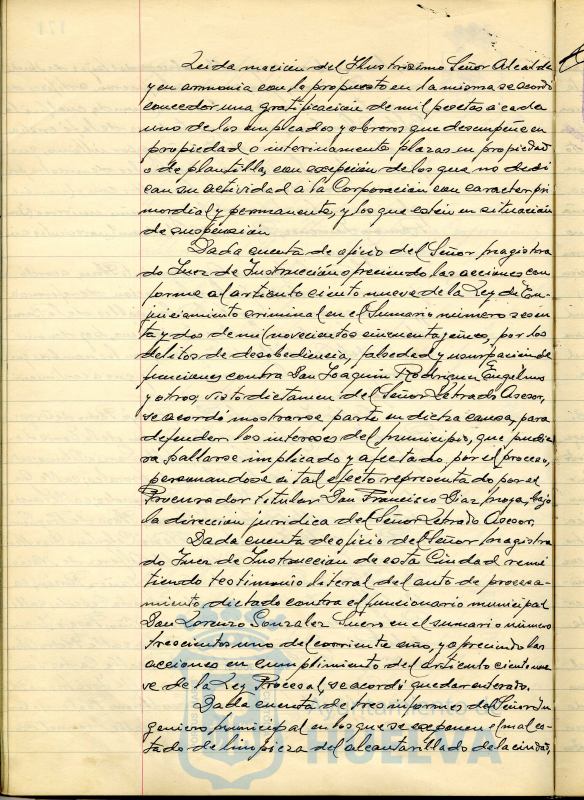 Leida moción del Ilustrísimo Señor Alcalde
y en armonia con lo propuesto en la misma se acordó
conceder una gratificación de mil pesetas a cada
uno de los empleados y obreros que desempeñen en
propiedad o interinamente plazas en propiedad
o de plantilla, con excepción de los que no dedi
can su actividad a la Corporación con caracter pri
mordial y permanente, y los que estén en situación
de suspensión
Dada cuenta de oficio del Señor Magistra
do Juez de Instrucción ofreciendo las acciones con
forme al artículo ciento nueve de la Ley de En-
juiciamiento criminal en el Sumario número sesen
ta y dos de mil novecientos cincuenta y cinco, por los
delitos de desobediencia, falsedad y usurpación de
funciones contra Don Joaquín Rodríguez
y otros, visto dictamen del Señor Letrado Asesor,
se acordó mostrarse parte en dicha causa, para
defender los intereses del Municipio, que pudie
ra hallarse implicado y afectado por el proceso,
personandose a tal efecto representado por el
Procurador titular Don Francisco Diaz Moya, bajo
la dirección jurídica del Señor Letrado Asesor.
Dada cuenta de oficio del Señor Magistra
do Juez de Instrucción de esta Ciudad remi
tiendo testimonio literal del auto de procesa-
miento dictado contra el funcionario municipal
Don Lorenzo Gonzalez Suero en el sumario número
trescientos uno del corriente año, y ofreciendo las
acciones en cumplimiento del artículo ciento nue
ve de la Ley Procesal, se acordó quedar enterado.
Dada cuenta de tres informes del Señor In
geniero municipal en los que se exponen el mal es-
tado de limpieza del alcantarillado de la ciudad,
Ayuntamiento de
HUELVA